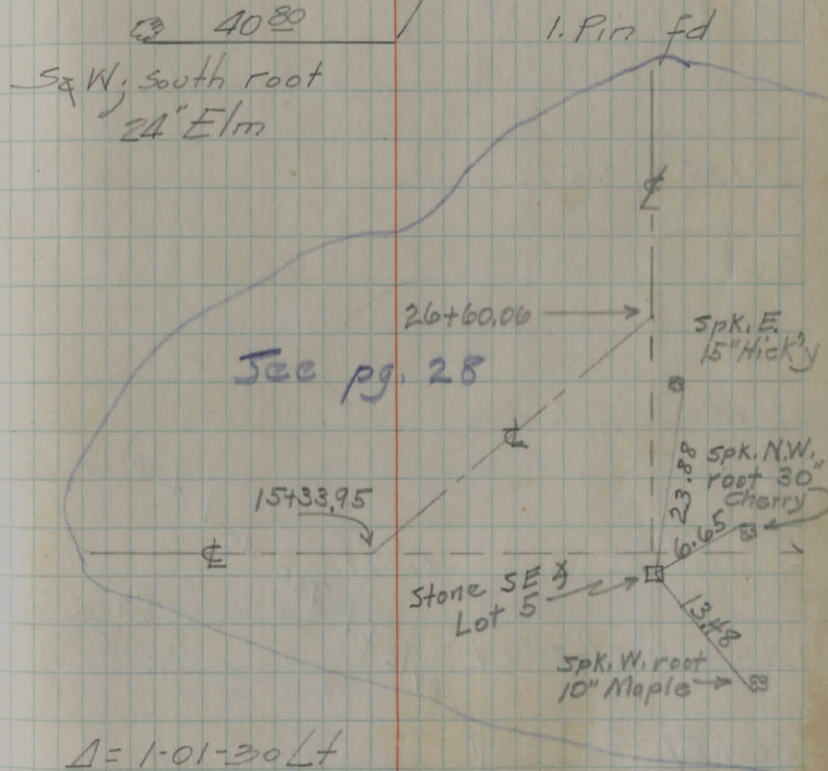 40 80
1. Pin fd
S & W; South root
24" Elm
℄
26+60.06
Spk. E.
15" Hick'y
See pg. 28
℄
23.88
Spk. N.W.
root 30"
Cherry
15+33.95
6.65
℄
Stone SE ∡
Lot 5
13.48
Spk. W. root
10" Maple
Δ = 1-01-30 Lt